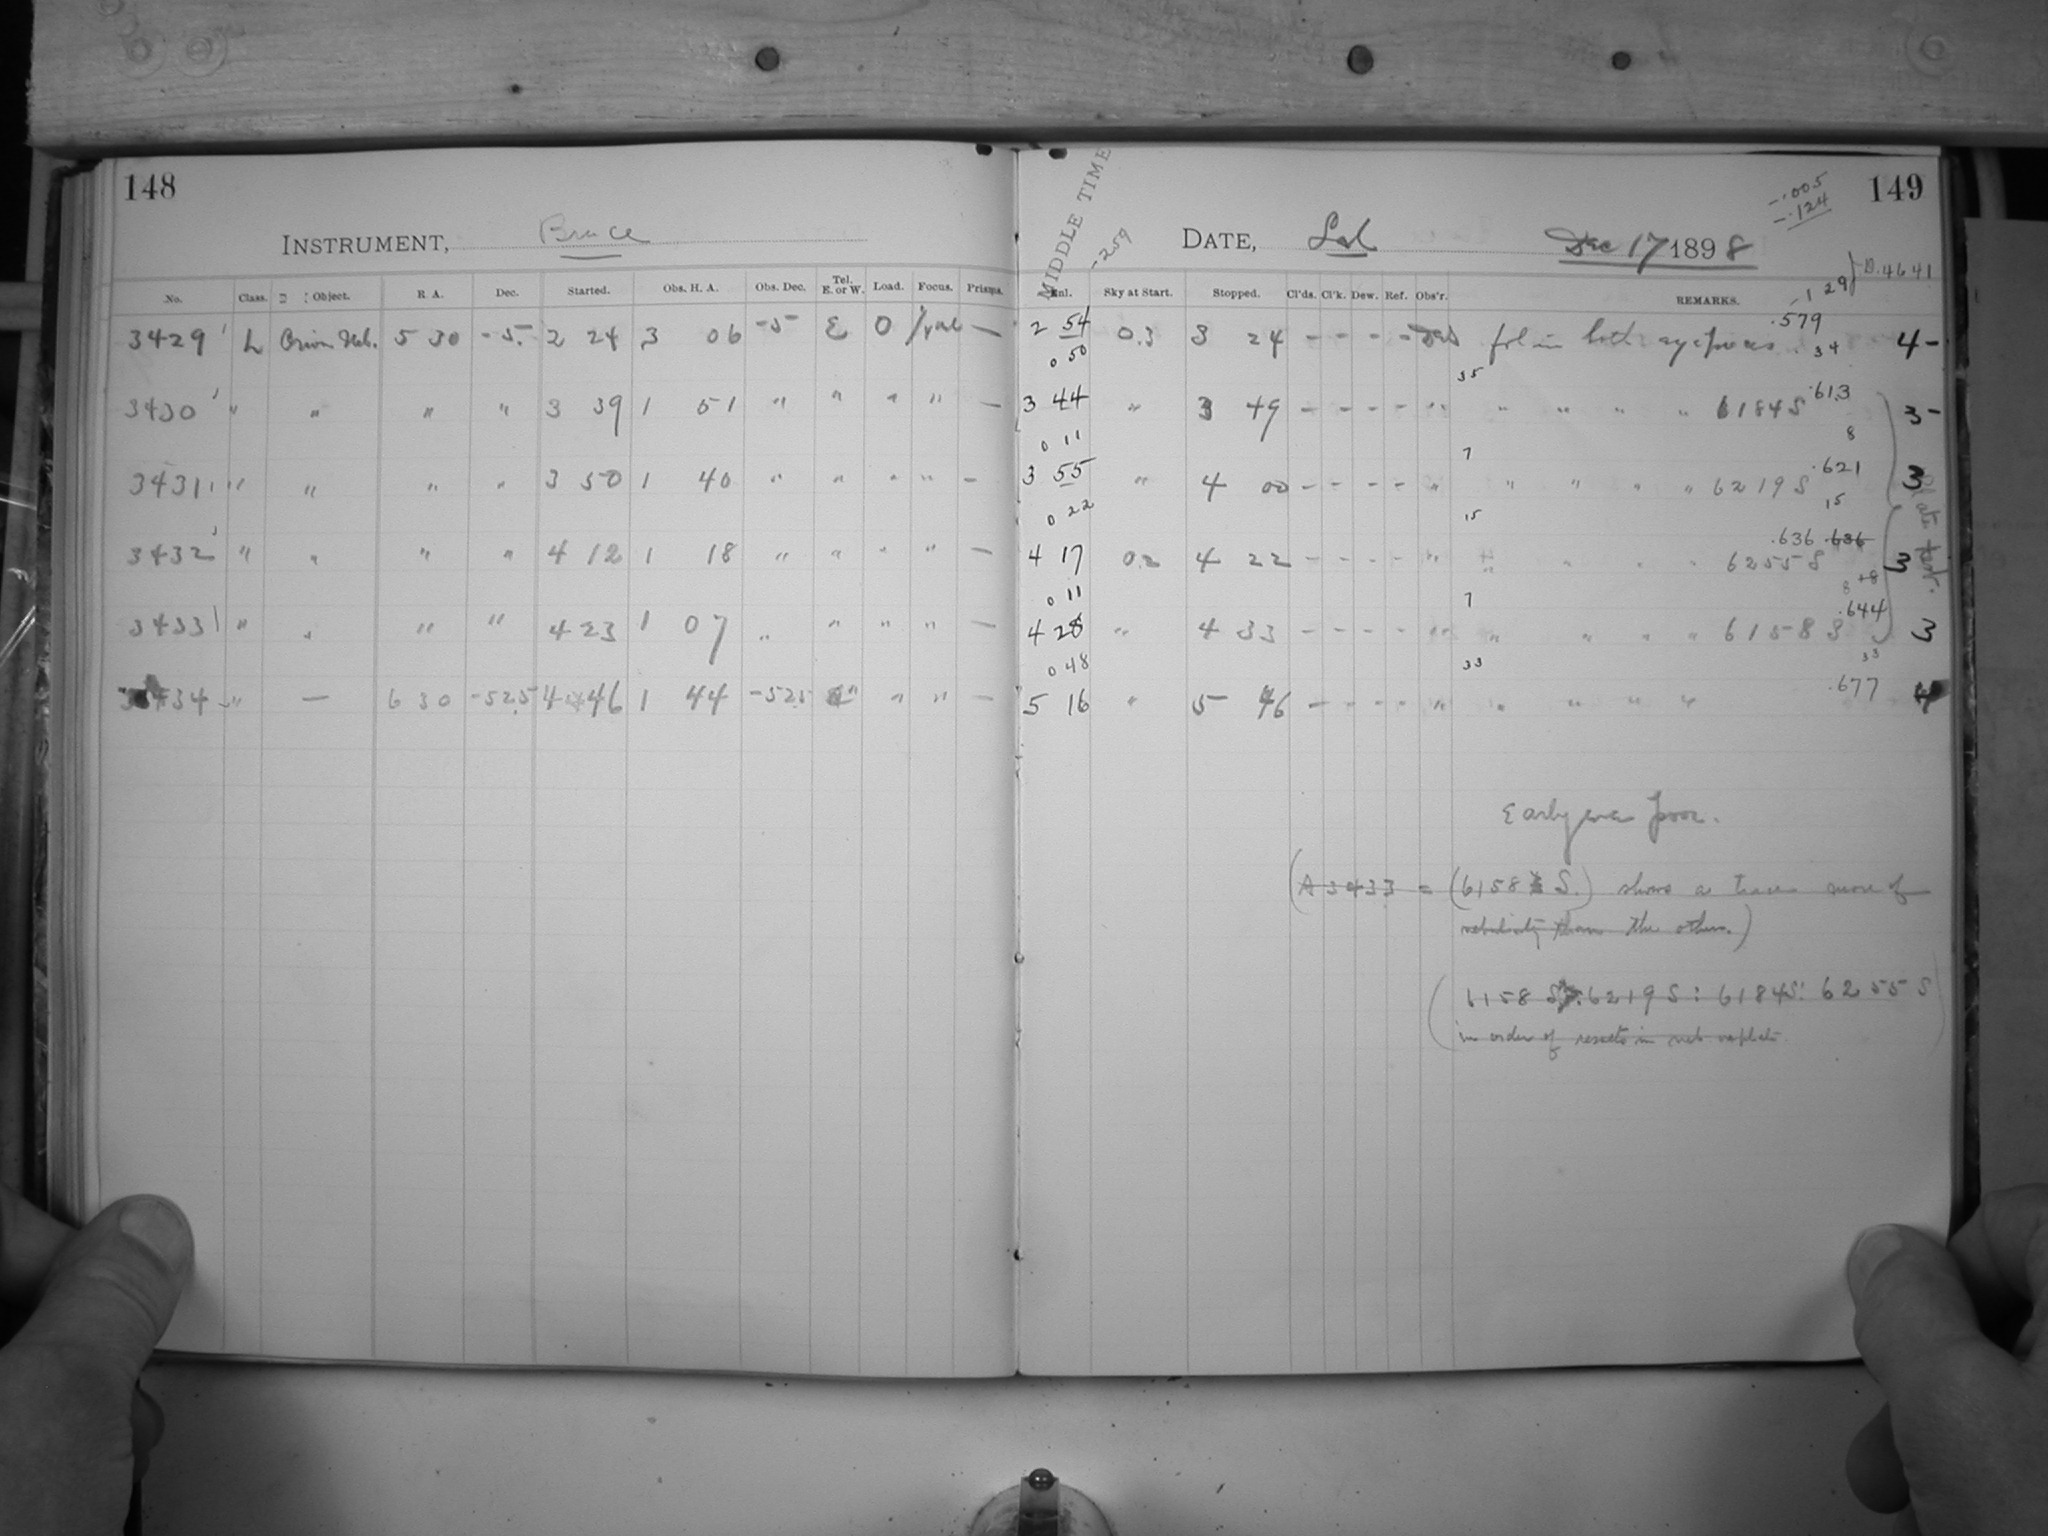 148
INSTRUMENT, Bruce
No. Class. Object. R. A. Dec. Started. Obs. H. A. Obs. Dec. Tel. E. or W. Load. Focus. Prisms.
3429 L Orion Neb. 5 30 -5. 2 24 3 06 -5 E 0 —
3430 " " " " 3 39 1 51 " " " " —
3431 " " " " 3 50 1 40 " " " " -
3432 " " " " 4 12 1 18 " " " " —
3433 " " " " 4 23 1 07 " " " " —
3434 " — 6 30 -52.5 4 46 1 44 -52.5 " " " —
149
-.005
-.124
MIDDLE TIME
-259
DATE, Sat Dec 17 1898
-129 } D.4641
Enl. Sky at Start. Stopped. Cl'ds. Cl'k. Dew. Ref. Obs'r. REMARKS.
2 54 0.3 3 24 - - - - fol in both eyepieces .579 4-
0 50 35 34
3 44 " 3 49 - - - - " " " " " 6184 S .613 3-
0 11 7 8
3 55 " 4 00 - - - - " " " " " 6219 S .621 3
0 22 15 15
4 17 0.2 4 22 - - - - " " " " " 6255 S .636 .636 3
0 11 7 8 +8
4 28 " 4 33 - - - - " " " " " 6158 S .644 3
0 48 33 33
5 16 " 5 46 - - - - " " " " " .677 4
Plate test.
Early eve poor.
(A 3433 = (6158 S.) shows a trace more of
nebulosity than the others.)
(6158 S 6219 S : 6184 S : 6255 S
in order of results in